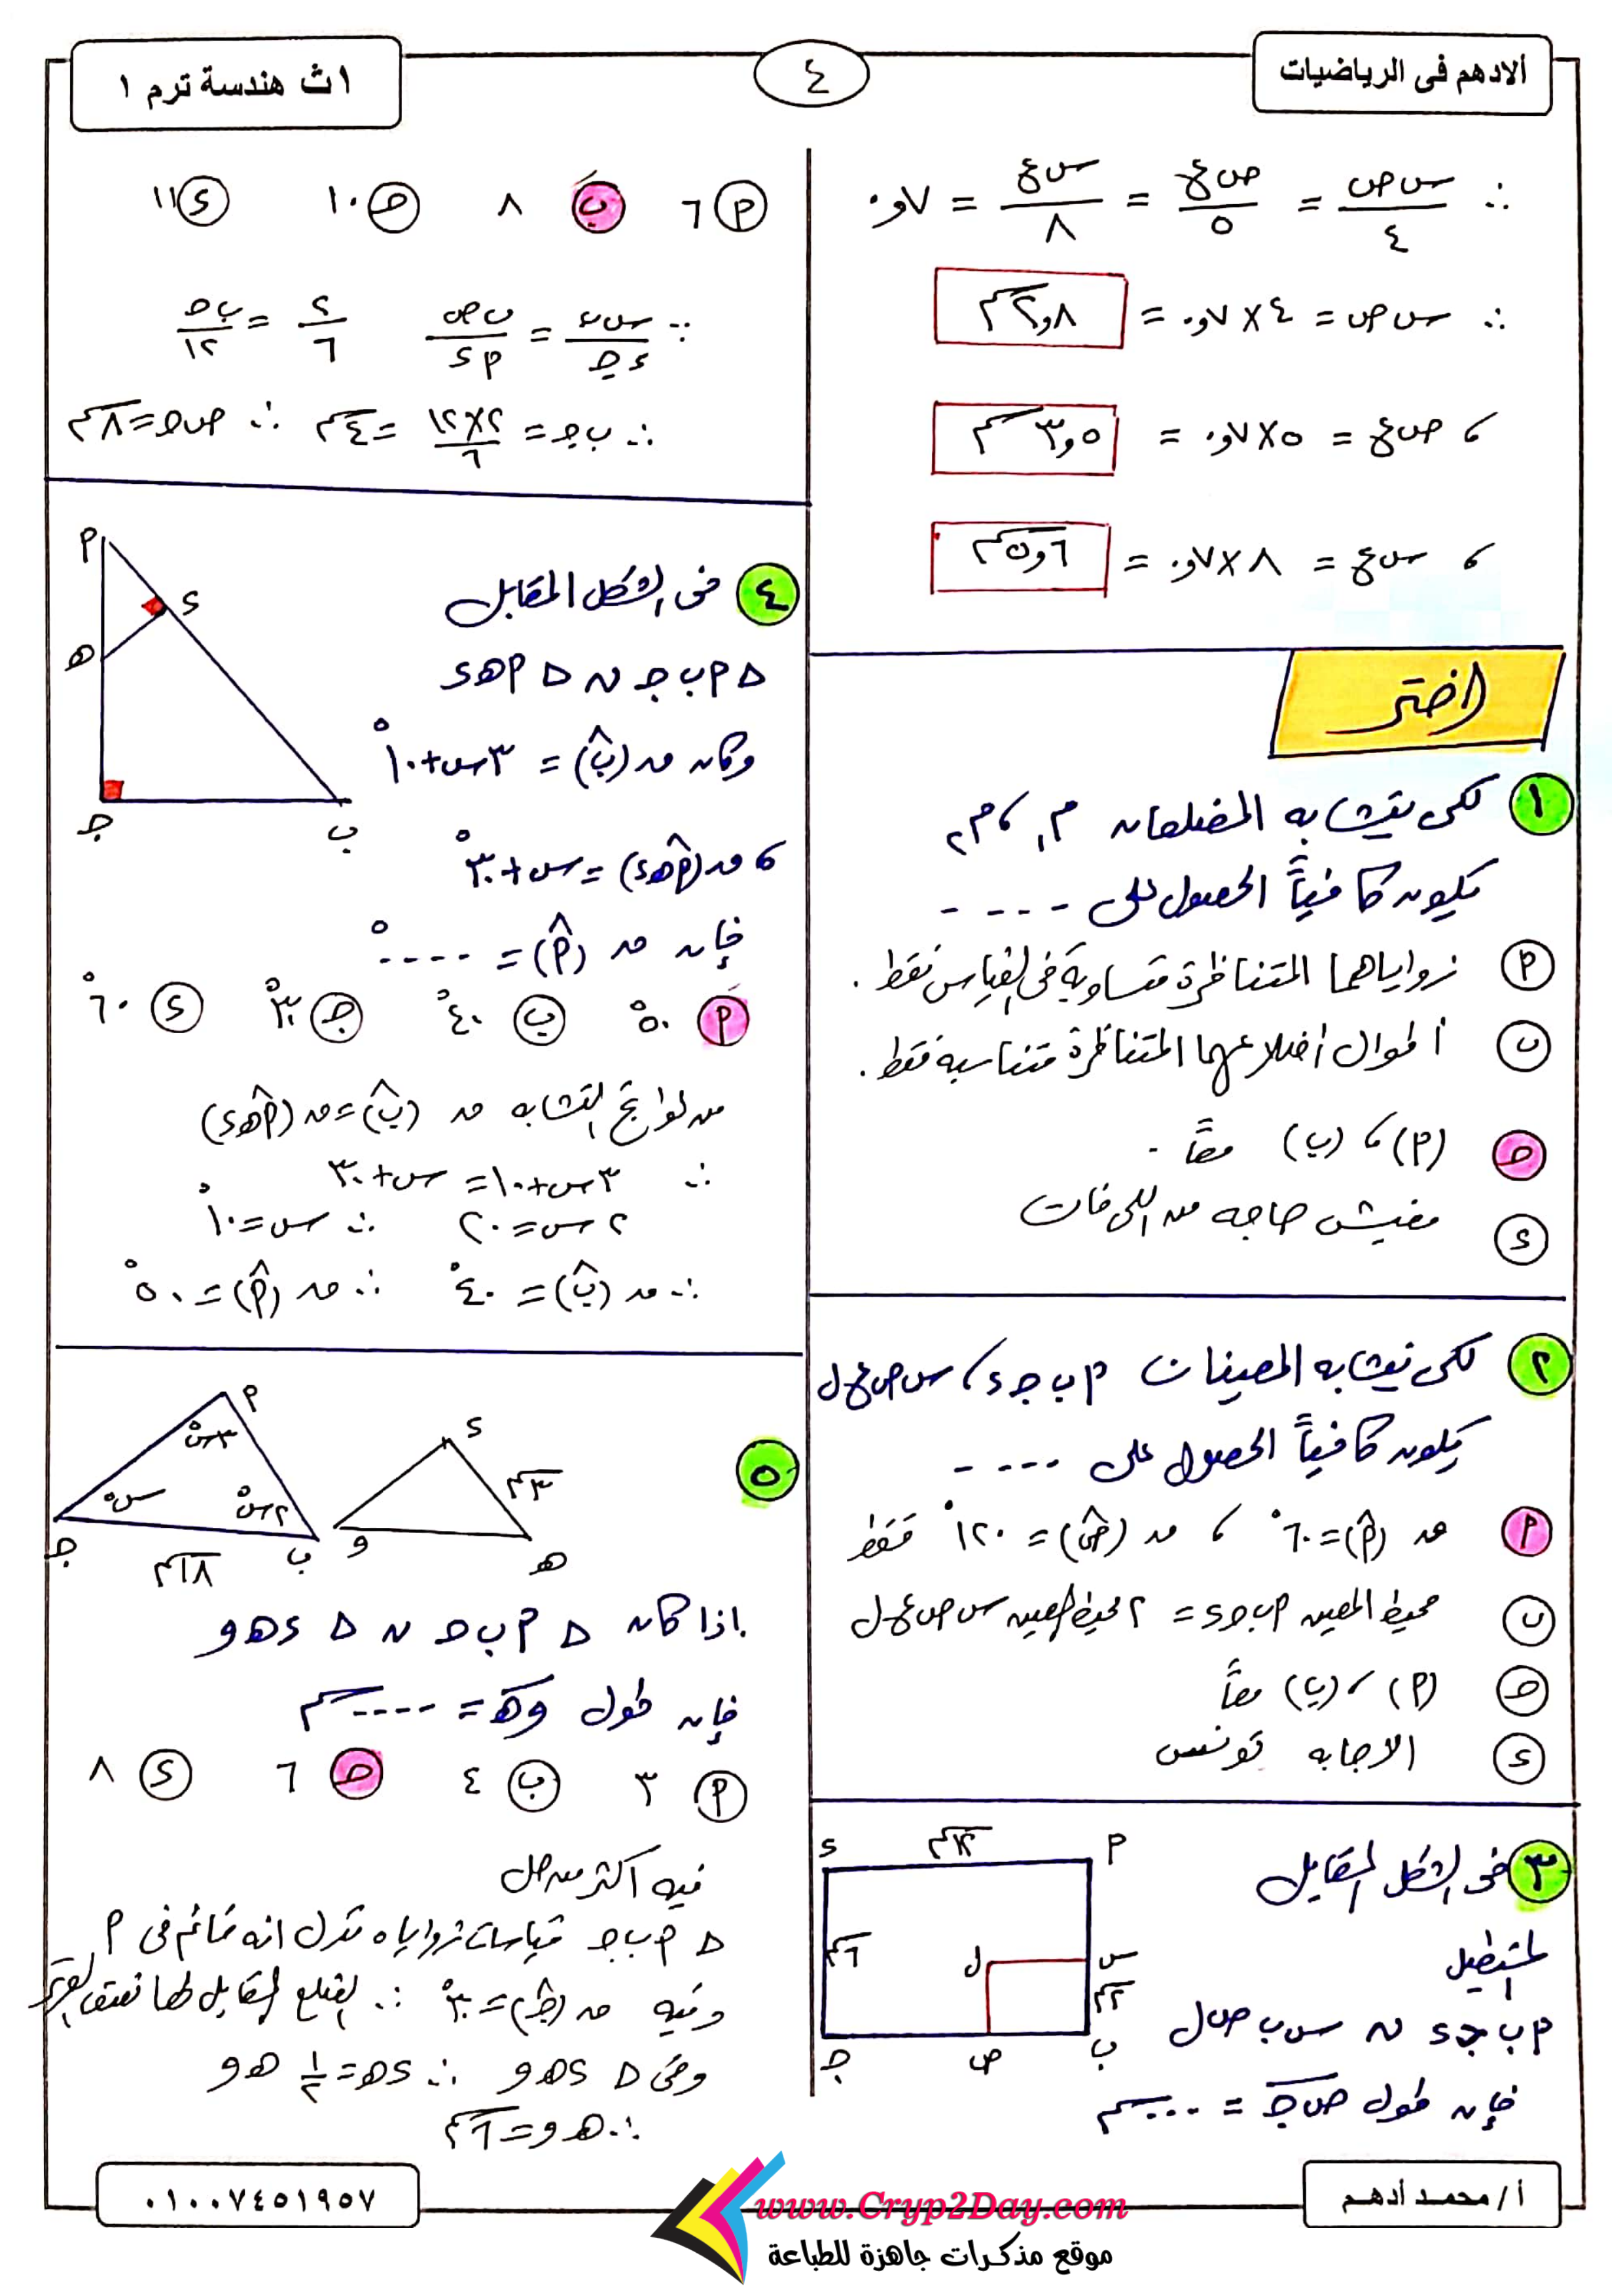 ألادهم فى الرياضيات
٤
١ث هندسة ترم ١
∴ س ص / ٤ = ص ع / ٥ = س ع / ٨ = ٠,٧
∴ س ص = ٤ × ٠,٧ = ٢,٨ سم
، ص ع = ٥ × ٠,٧ = ٣,٥ سم
، س ع = ٨ × ٠,٧ = ٥,٦ سم
اختر
١ لكى يتشابه المضلعان م١ ، م٢
يكون كافياً الحصول على ----
أ زواياهما المتناظرة متساوية فى القياس فقط .
ب أطوال أضلاعهما المتناظرة متناسبة فقط .
ح (أ) ، (ب) معاً .
ء مفيش حاجه من اللى فات
٢ لكى يتشابه المعينات أ ب ج ء ، س ص ع ل
يكون كافياً الحصول على ----
أ ق (أ) = ٦٠° ، ق (ص) = ١٢٠° فقط
ب محيط المعين أ ب ج ء = ٢ محيط المعين س ص ع ل
ح (أ) ، (ب) معاً
ء الاجابه تونس
٣ فى الشكل المقابل
المستطيل
أ ب ج ء ~ س ب ص ل
فإن طول ص ج = ---- سم
ء ١٢ سم أ
٦ سم ل س
٢ سم
ج ص ب
أ ٦ ب ٨ ح ١٠ ء ١١
∵ س ب / ء ج = ب ص / أ ء
٢ / ٦ = ب ص / ١٢
∴ ب ص = ٢ × ١٢ / ٦ = ٤ سم ∴ ص ج = ٨ سم
٤ فى الشكل المقابل
Δ أ ب ج ~ Δ أ ه ء
وكان ق (ب) = ٣س + ١٠°
، ق (أ ه ء) = س + ٣٠°
فإن ق (أ) = ----°
أ
ء
ه
ج ب
أ ٥٠° ب ٤٠° ج ٣٠° ء ٦٠°
من نواتج التشابه ق (ب) = ق (أ ه ء)
∴ ٣س + ١٠ = س + ٣٠
٢س = ٢٠ ∴ س = ١٠°
∴ ق (ب) = ٤٠° ∴ ق (أ) = ٥٠°
٥
أ ٣س° س° ٢س° ج ب ١٨ سم
ء ٣ سم و ه
اذا كان Δ أ ب ج ~ Δ ء ه و
فإن طول و ه = ---- سم
أ ٣ ب ٤ ح ٦ ء ٨
فيه أكثر من حل
Δ أ ب ج قياسات زواياه تدل انه قائم فى أ
وفيه ق (ج) = ٣٠° ∴ الضلع المقابل لها نصف الوتر
وفى Δ ء ه و ∴ ء ه = ١/٢ ه و
∴ ه و = ٦ سم
أ / محمد أدهم
٠١٠٠٧٤٥١٩٥٧
www.Cryp2Day.com
موقع مذكرات جاهزة للطباعة